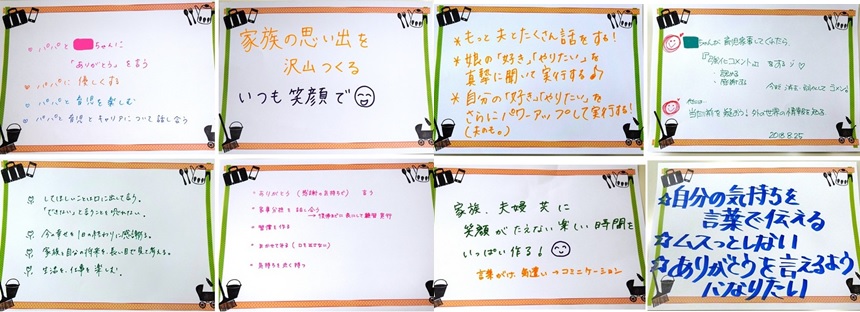 パパと ちゃんに
「ありがとう」を言う
パパに優しくする
パパと育児を楽しむ
パパと育児とキャリアについて話し合う
家族の思い出を
沢山つくる
いつも笑顔で
*もっと夫とたくさん話をする!
*娘の「好き」「やりたい」を
真摯に聞いて実行する♪
*自分の「好き」「やりたい」を
さらにパワーアップして実行する!
(夫のも。)
ちゃんが
コメント
2018.8.25
してほしいことは口に出して言う。
「できない」って言うことも恐れない。
今の幸せを1日の終わりに感謝する。
家族と自分の将来を長い目で見て考える。
生活を、仕事を楽しむ。
ありがとう(感謝の気持ち) 言う
家事分担を話し合う
習慣を作る
気持ちを広く持つ
家族、夫婦共に
笑顔がたえない楽しい時間を
いっぱい作る!
言葉がけ、気遣い→コミニケーション
☆自分の気持ちを
言葉で伝える
☆ムスっとしない
☆ありがとうを言えるよう
になりたい